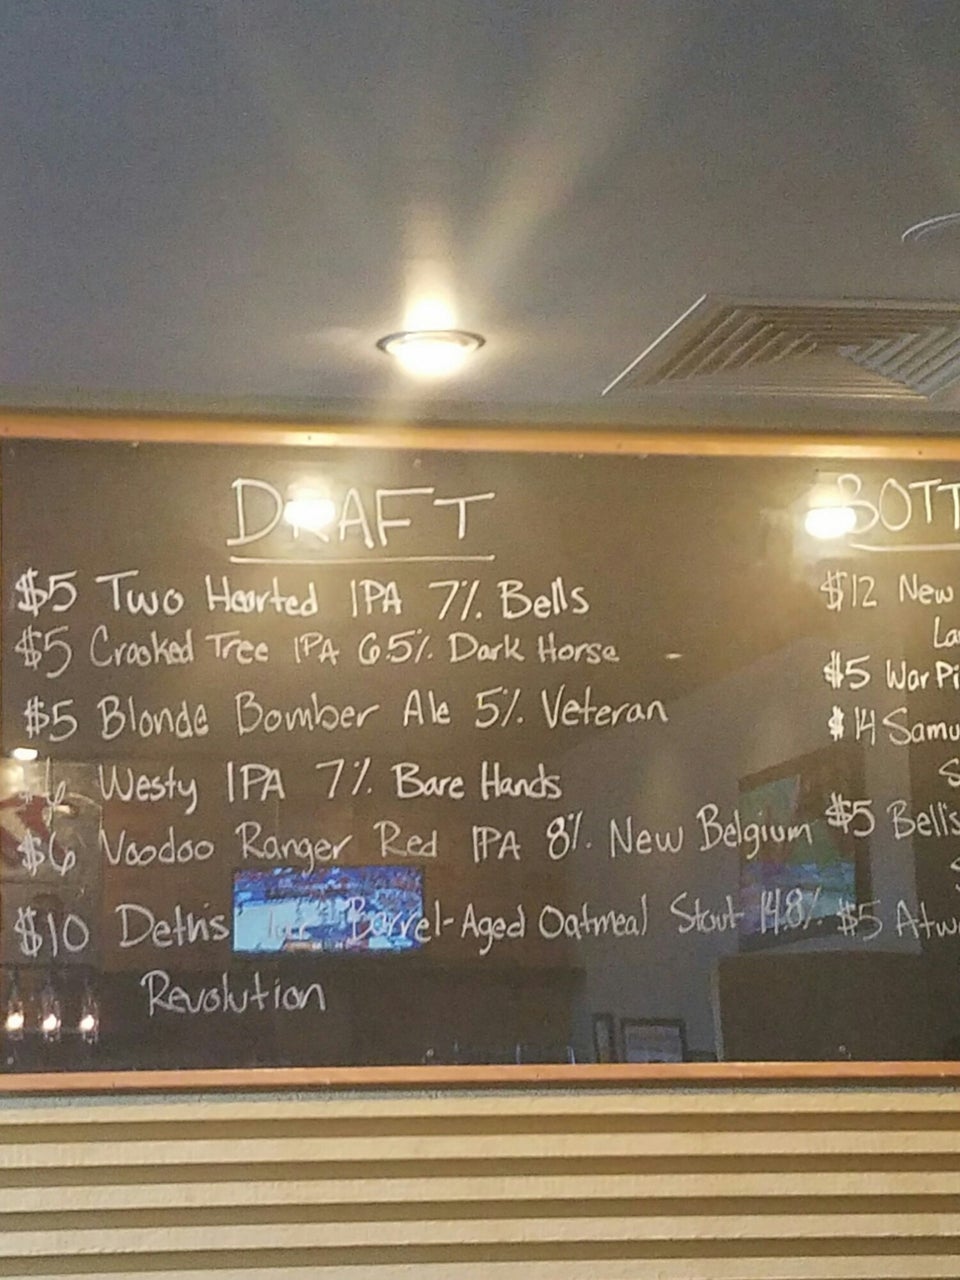 DRAFT
$5 Two Hearted IPA 7% Bells
$5 Crooked Tree IPA 6.5% Dark Horse -
$5 Blonde Bomber Ale 5% Veteran
$6 Westy IPA 7% Bare Hands
$6 Voodoo Ranger Red IPA 8% New Belgium
$10 Deth's Tar Barrel-Aged Oatmeal Stout 14.8%
Revolution
BOTT
$12 New
La
$5 War Pi
$14 Samu
S
$5 Bell's
S
$5 Atw